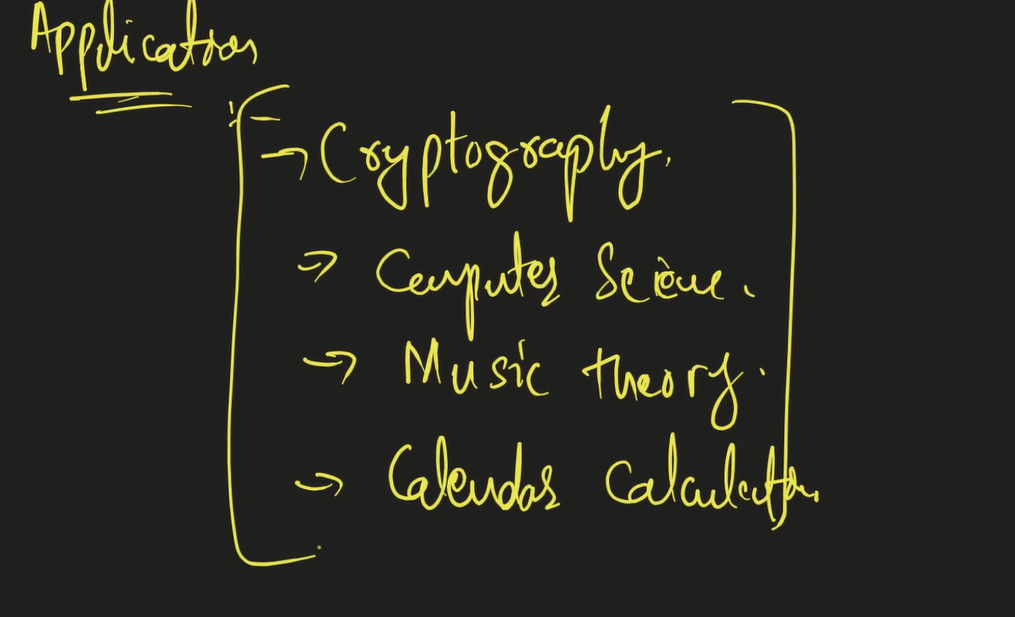 Application
:-
→ Cryptography.
→ Computer Science.
→ Music theory.
→ Calendar Calculation